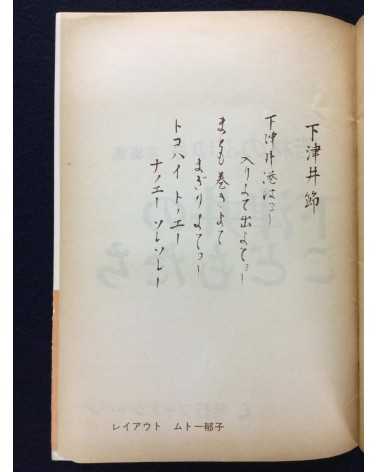 下津井節
下津井港はヨー
入りよて出よてヨー
まとも巻きよて
まぎりよてヨー
トコハイ トノエー
ナノエー ソレソレー
レイアウト ムトー郁子